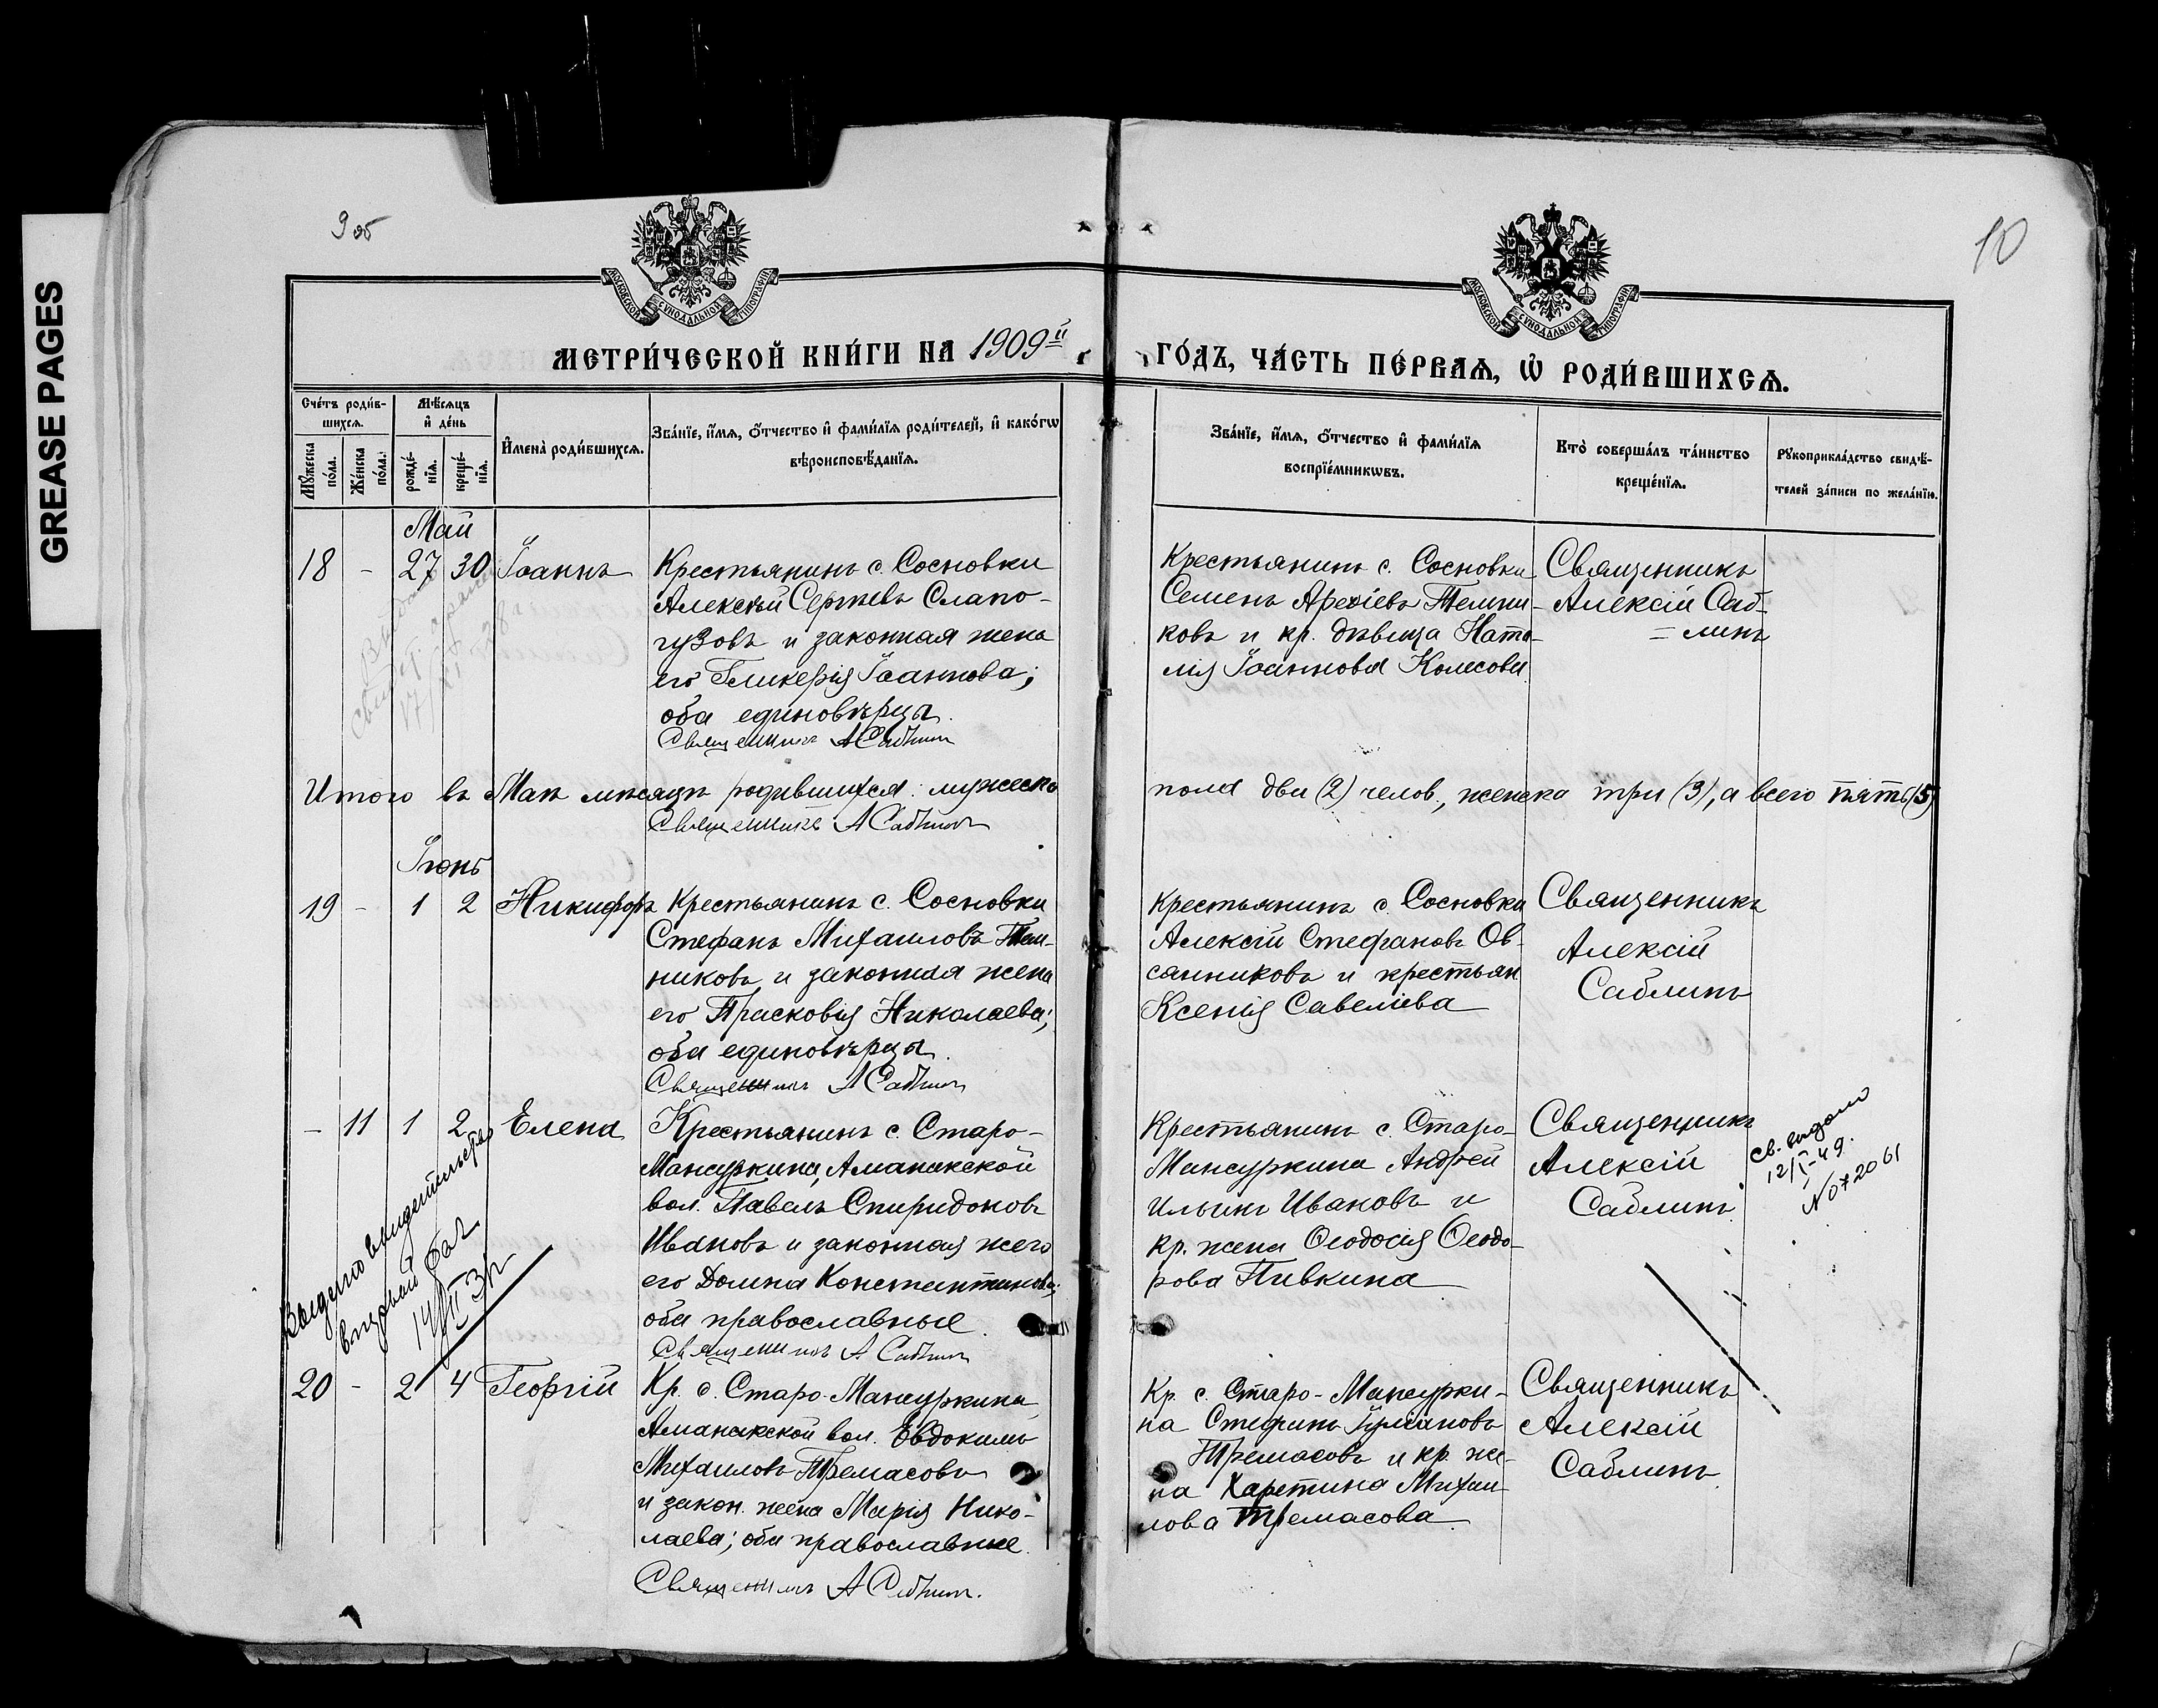 GREASE PAGES
9 об
10
МОСКОВСКОЙ СѴНОДАЛЬНОЙ ТИПОГРАФІИ
МОСКОВСКОЙ СѴНОДАЛЬНОЙ ТИПОГРАФІИ
МЕТРИ́ЧЕСКОЙ КНИ́ГИ НА 1909й
ГО́ДЪ, ЧА́СТЬ ПЕ́РВАѦ, Ѡ҆ РОДИ́ВШИХСѦ.
Сче́тъ роди́в-
шихсѧ.
Мꙋ́жеска
по́ла.
Же́нска
по́ла.
Мѣ́сѧцъ
и҆ де́нь
рожде́-
нїѧ.
креще́-
нїѧ.
И҆мена̀ роди́вшихсѧ.
Зва́нїе, и҆́мѧ, ѻ҆́тчество и҆ фами́лїѧ роди́телей, и҆ како́гѡ
вѣроисповѣ́данїѧ.
Зва́нїе, и҆́мѧ, ѻ҆́тчество и҆ фами́лїѧ
воспрїе́мникѡвъ.
Кто̀ соверша́лъ та́инство
креще́нїѧ.
Рꙋкоприкла́дство свидѣ́-
телей за́писи по жела́нїю.
Май
18 - 27 30 Іоаннъ
Крестьянинъ с. Сосновки
Алексѣй Сергѣевъ Слапо-
гузовъ и законная жена
его Гликерія Іоаннова;
оба единовѣрцы.
Священникъ А Саблинъ
Крестьянинъ с. Сосновки
Семенъ Арефіевъ Темни-
ковъ и кр. дѣвица Ната-
лія Іоаннова Колесова
Священникъ
Алексій Саб-
= линъ
Итого въ Маѣ мѣсяцѣ родившихся: мужеска
пола два (2) челов., женска три (3), а всего пять (5)
Священникъ А Саблинъ
Іюнь
19 - 1 2 Никифоръ
Крестьянинъ с. Сосновки
Стефанъ Михаиловъ Тем-
никовъ и законная жена
его Прасковія Николаева;
оба единовѣрцы.
Священникъ А Саблинъ
Крестьянинъ с. Сосновки
Алексій Стефановъ Ов-
санниковъ и крестьян
Ксенія Савеліева
Священникъ
Алексій
Саблинъ
- 11 1 2 Елена
Крестьянинъ с. Старо-
Мансуркина, Аманакской
вол. Павелъ Спиридоновъ
Ивановъ и законная жего
его Домна Константинова;
оба православные.
Священникъ А Саблинъ
Крестьянинъ с. Старо-
Мансуркина Андрей
Ильинъ Ивановъ и
кр. жена Ѳеодосія Ѳеодо-
рова Пивкина
Священникъ
Алексій
Саблинъ.
св. выдано
12/I-49.
№072061
Выдано свидетельство
20 - 2 4 Георгій
Кр. с. Старо-Мансуркина
Аманакской вол. Евдокимъ
Михаиловъ Тремасовъ
и закон. жена Марія Нико-
лаева; оба православные.
Священникъ А Саблинъ.
Кр. с. Старо-Мансурки-
на Стефанъ Іуліановъ
Тремасовъ и кр. же-
на Харетина Михаи-
лова Тремасова
Священникъ
Алексій
Саблинъ